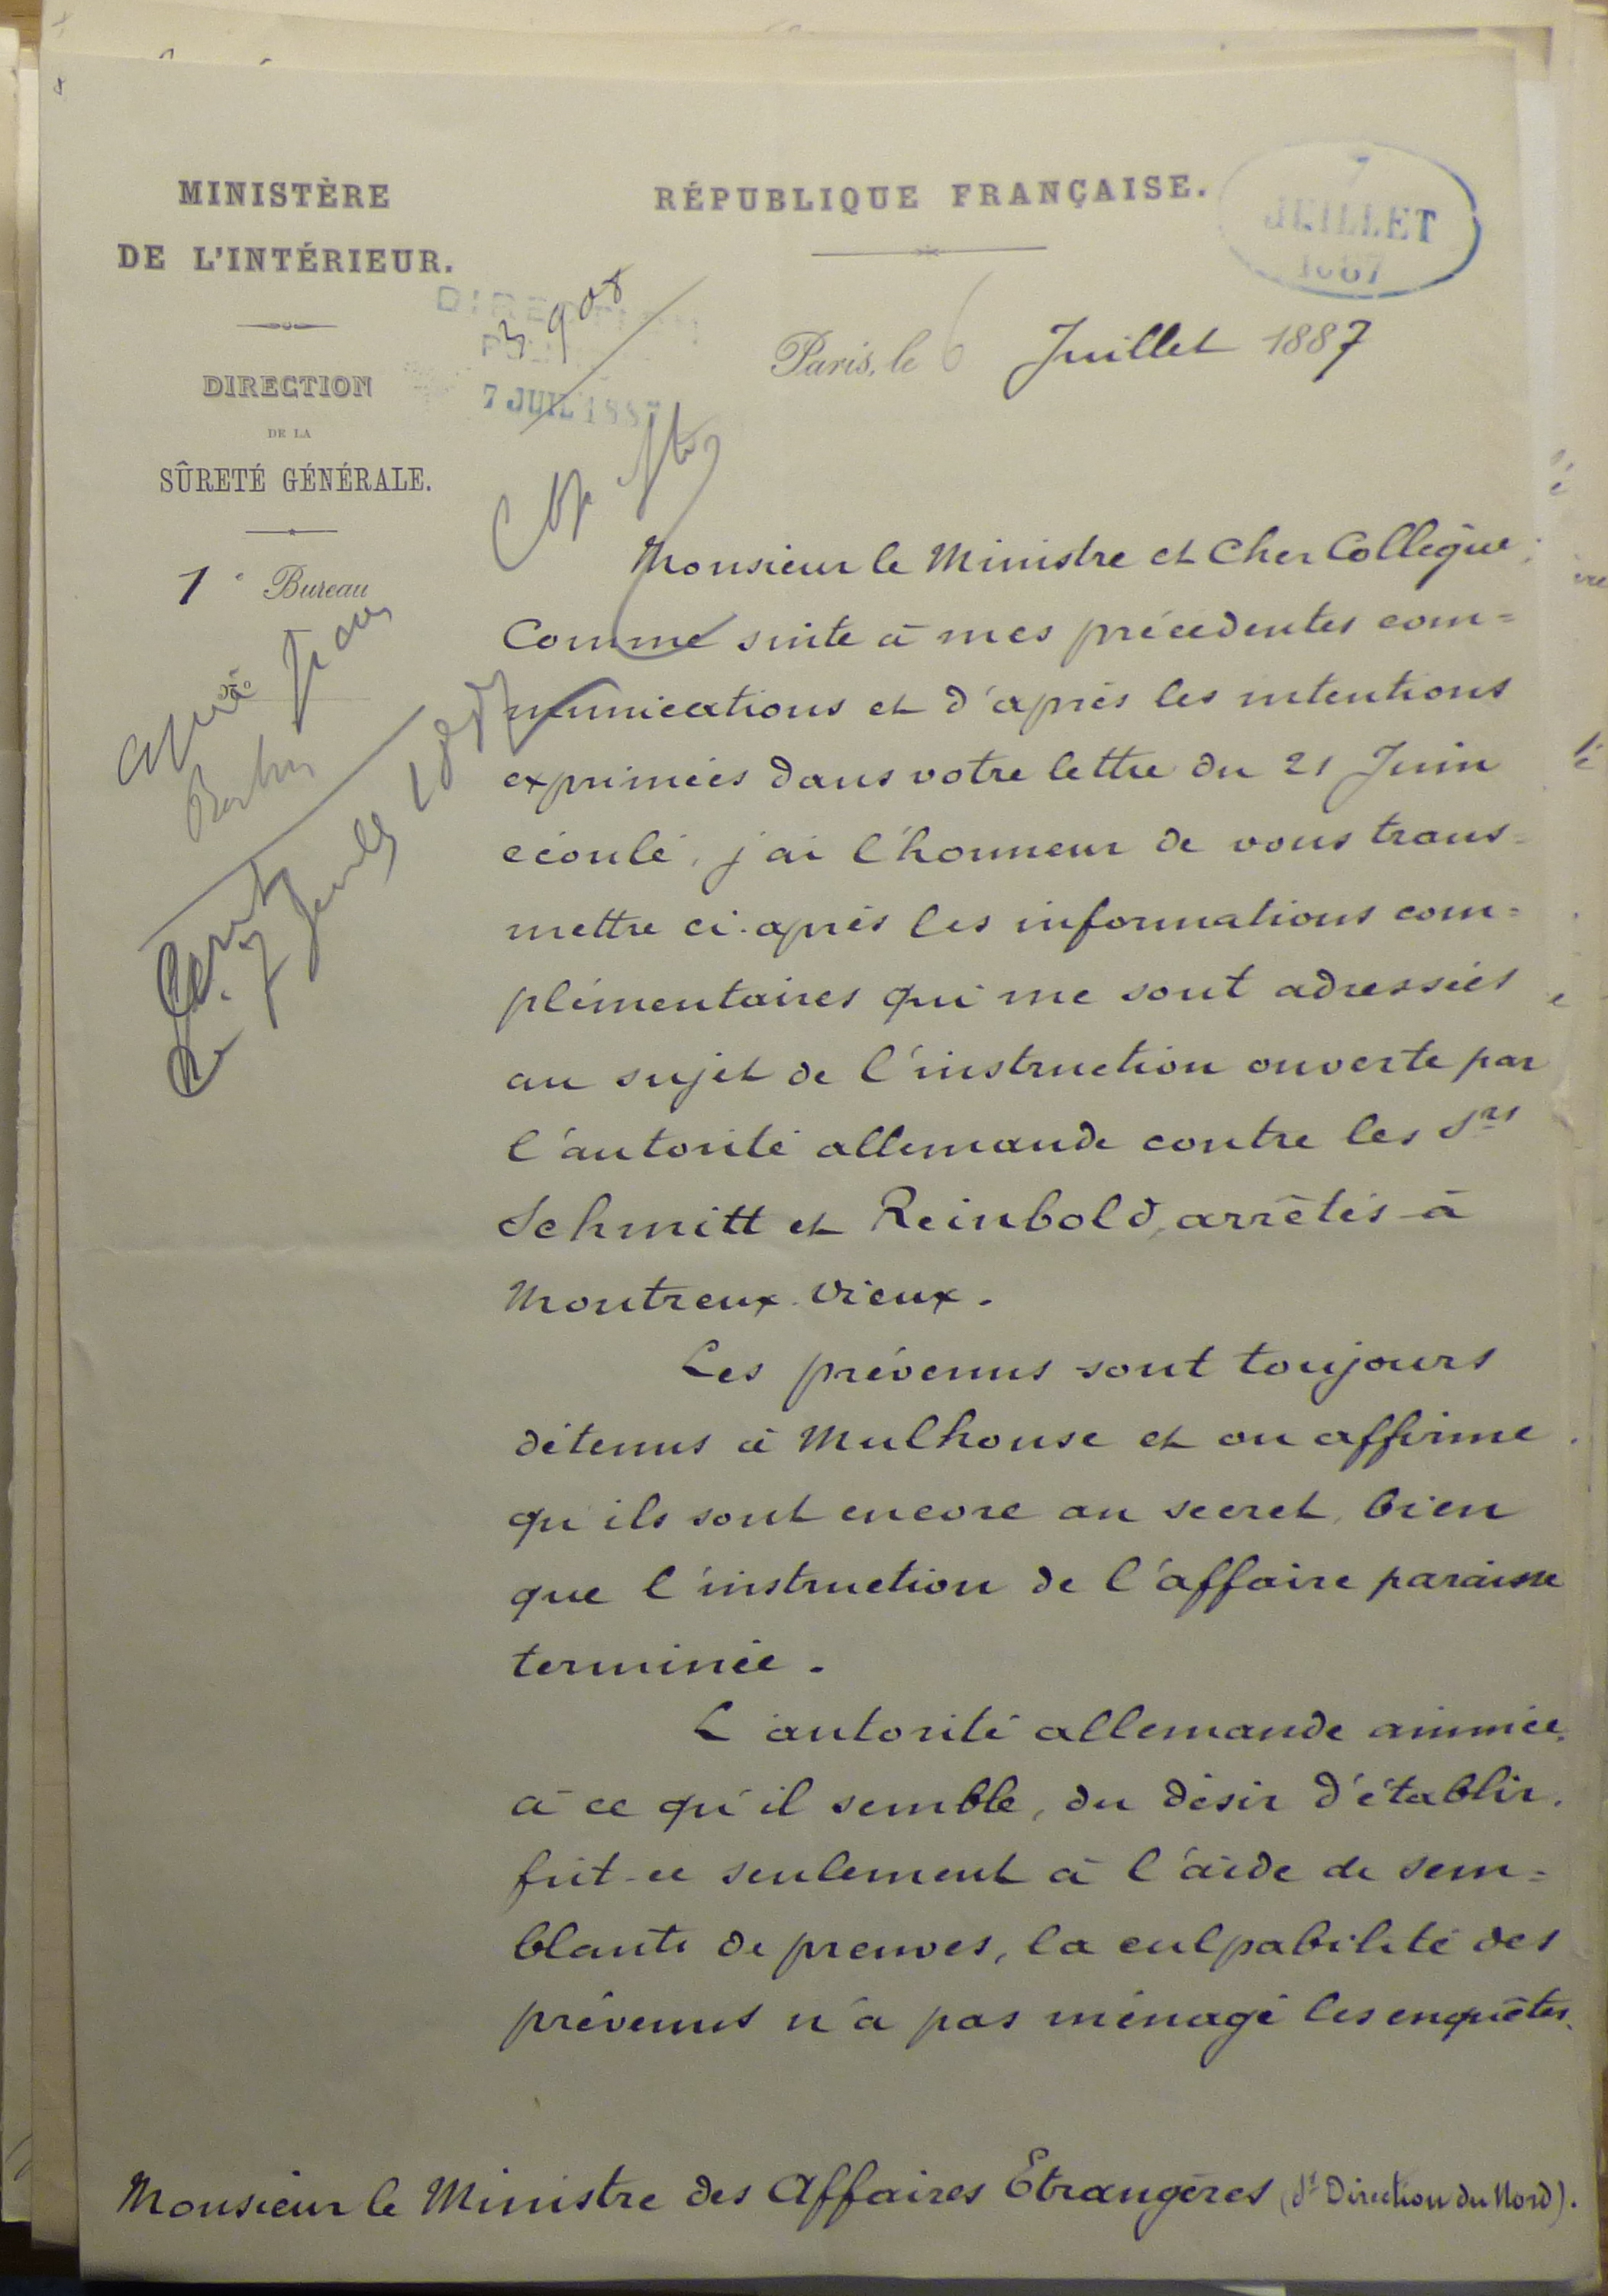 MINISTÈRE
DE L'INTÉRIEUR.
DIRECTION
DE LA
SÛRETÉ GÉNÉRALE.
1e Bureau
RÉPUBLIQUE FRANÇAISE.
7
JUILLET
1887
7 JUIL 1887
3908
Paris, le 6 Juillet 1887
7 1887
Monsieur le Ministre et Cher Collègue,
Comme suite à mes précédentes com=
munications et d'après les intentions
exprimées dans votre lettre du 21 Juin
écoulé, j'ai l'honneur de vous trans=
mettre ci-après les informations com=
plémentaires qui me sont adressées
au sujet de l'instruction ouverte par
l'autorité allemande contre les Srs
Schmitt et Reinbold, arrêtés à
Montreux-Vieux.
Les prévenus sont toujours
détenus à Mulhouse et on affirme
qu'ils sont encore au secret, bien
que l'instruction de l'affaire paraisse
terminée.
L'autorité allemande animée,
à ce qu'il semble, du désir d'établir,
fût-ce seulement à l'aide de sem=
blants de preuves, la culpabilité des
prévenus n'a pas ménagé les enquêtes.
Monsieur le Ministre des Affaires Etrangères (Direction du Nord).